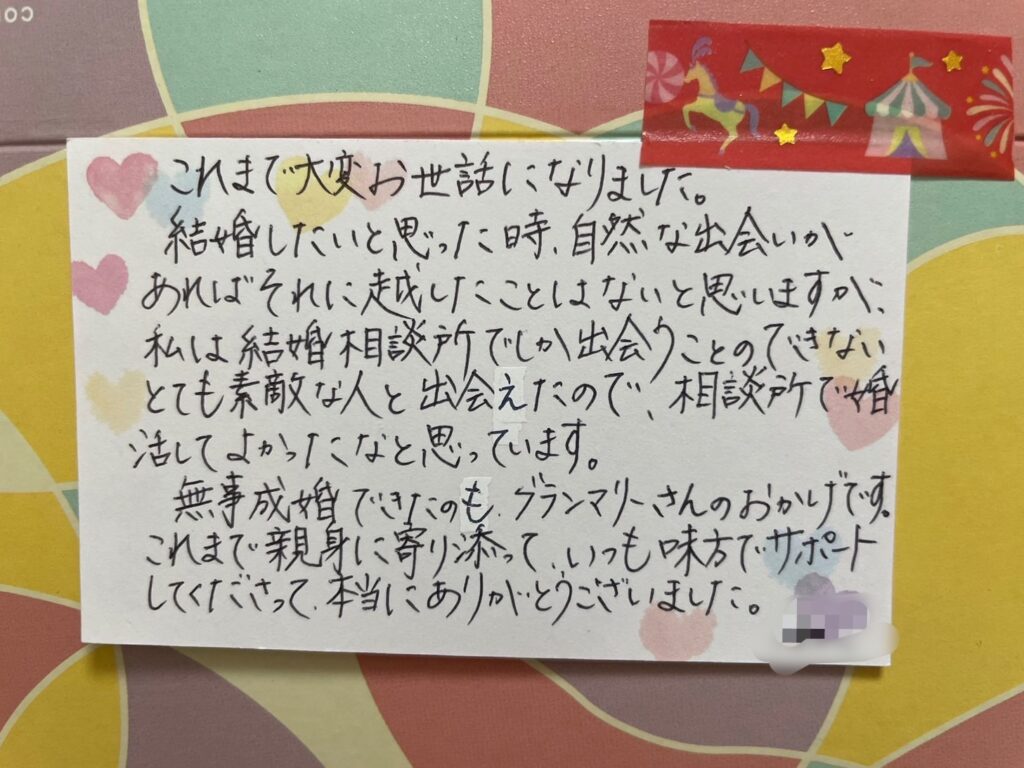 これまで大変お世話になりました。
結婚したいと思った時、自然な出会いが
あればそれに越したことはないと思いますが、
私は結婚相談所でしか出会うことのできない
とても素敵な人と出会えたので、相談所で婚
活してよかったなと思っています。
無事成婚できたのも、ブランマリーさんのおかげです。
これまで親身に寄り添って、いつも味方でサポート
してくださって、本当にありがとうございました。